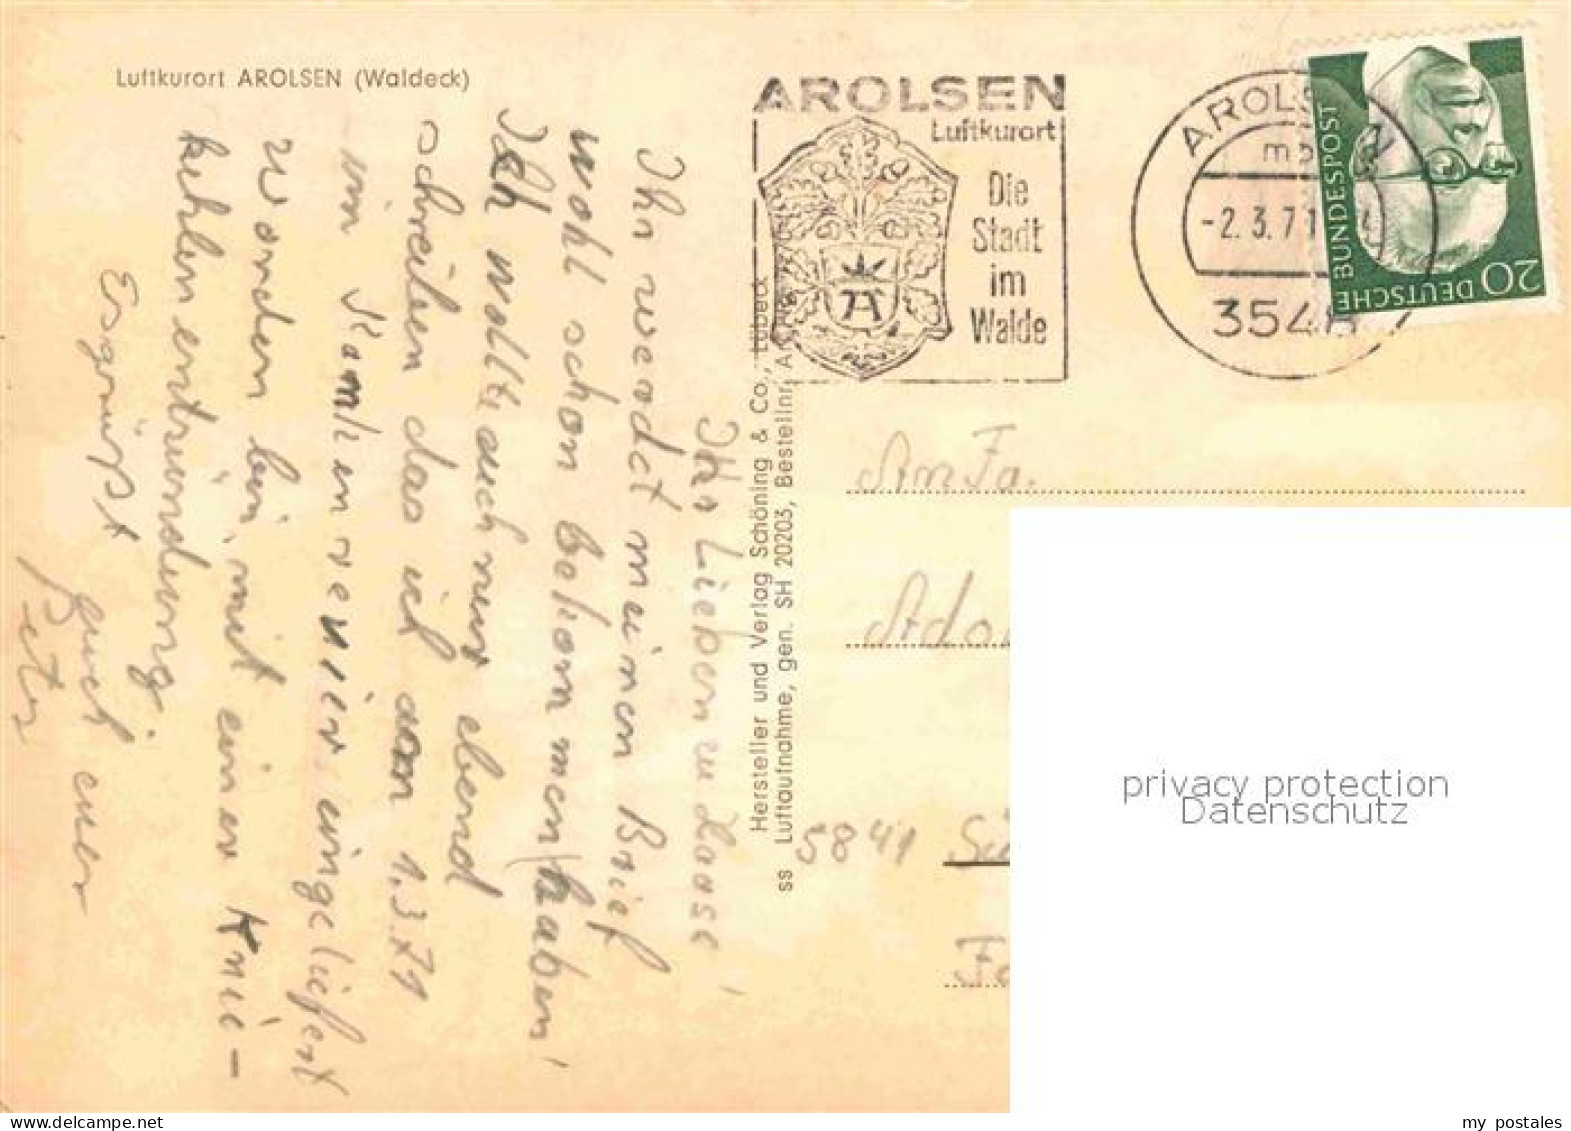 Luftkurort AROLSEN (Waldeck)
AROLSEN
Luftkurort
Die
Stadt
im
Walde
A
AROLSEN
-2.3.71
3548
DEUTSCHE BUNDESPOST
20
Ihr Lieben u
Ihr werdet meinen Brief
wohl schon bekommen haben!
Ich wollte euch nur ebend
schreiben das ich am 1.3.71
im Krankenrevier eingeliefert
worden bin, mit einer Knie-
kehlenentzündung.
Es grüßt euch euer
Peter
Hersteller und Verlag Schöning & Co., Lübeck
ss Luftaufnahme, gen. SH 20203, Bestellnr.
An Fa.
Ado
5841 Sü
privacy protection
Datenschutz
delcampe.net
my postales